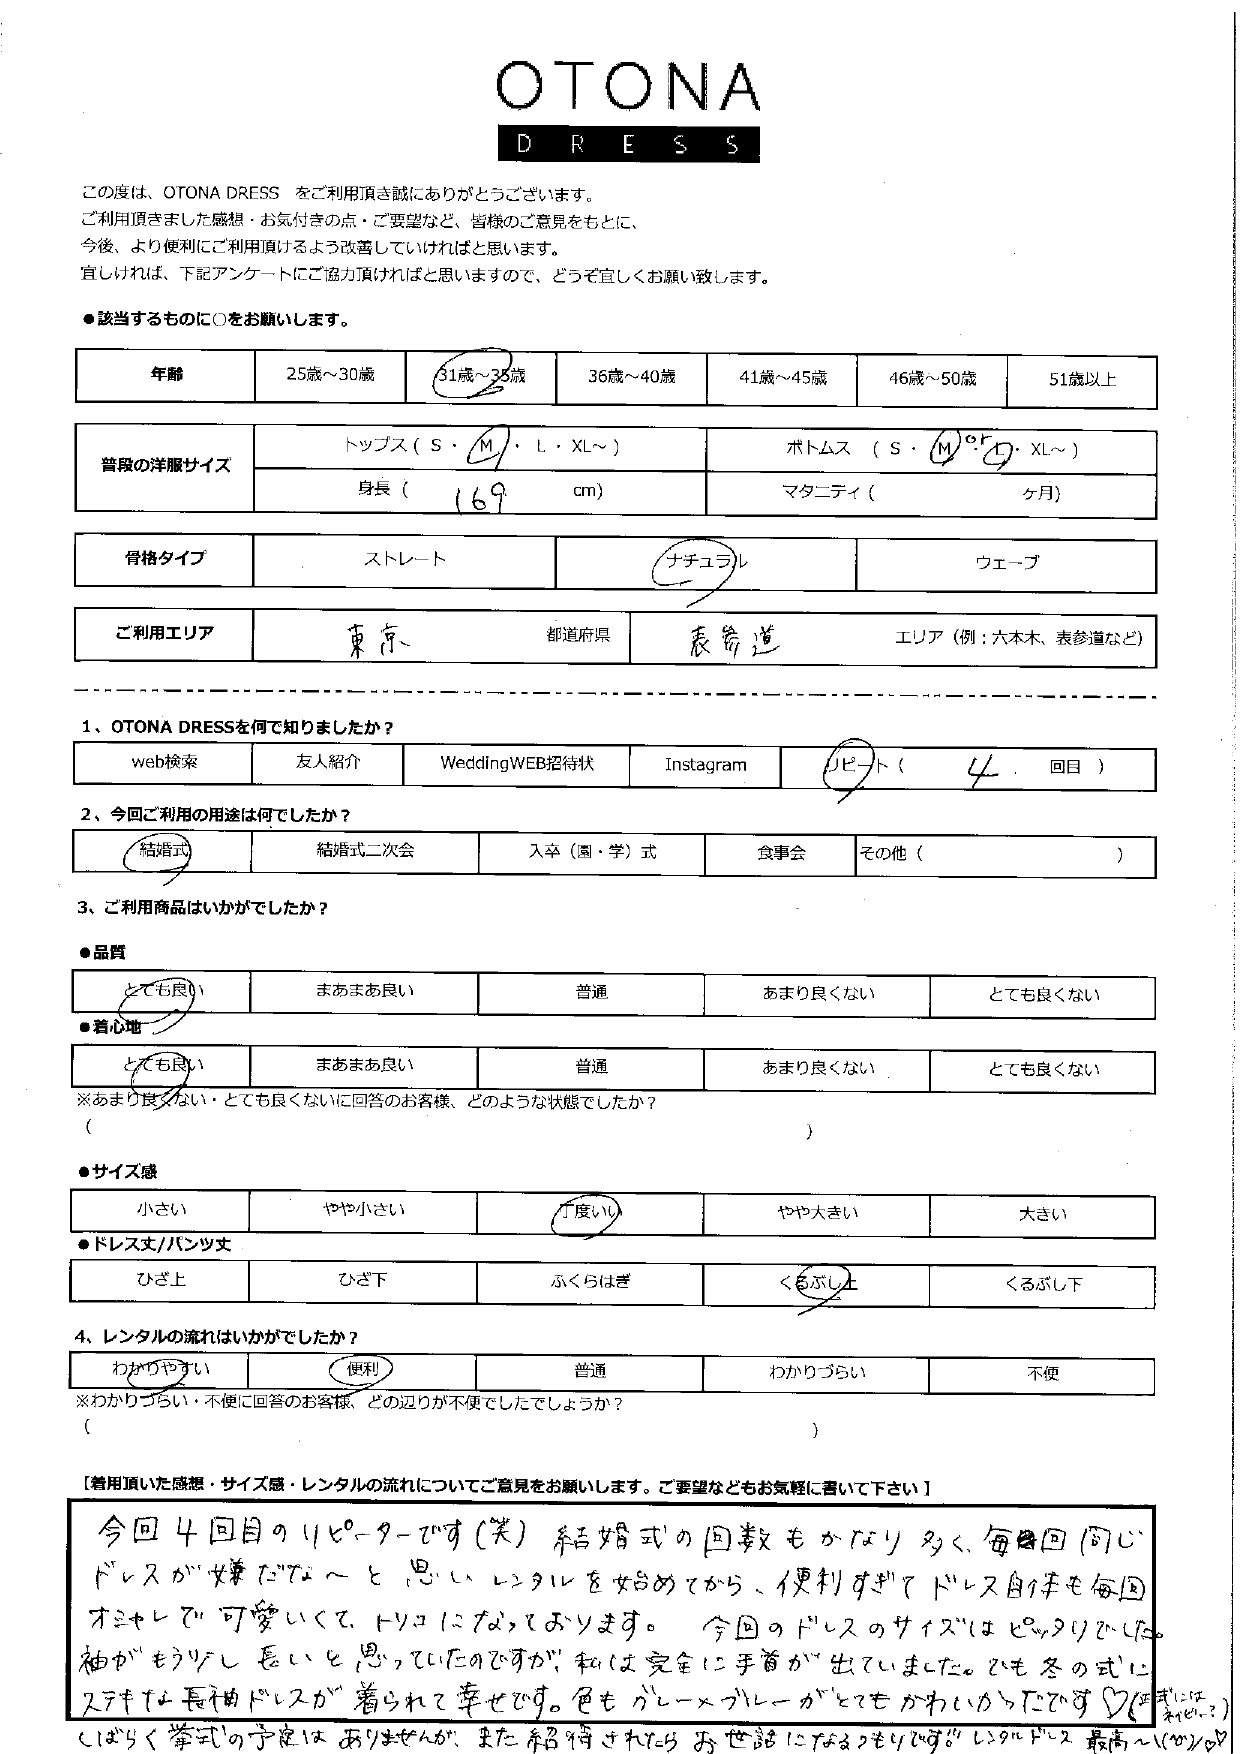 OTONA
DRESS
この度は、OTONA DRESS をご利用頂き誠にありがとうございます。
ご利用頂きました感想・お気付きの点・ご要望など、皆様のご意見をもとに、
今後、より便利にご利用頂けるよう改善していければと思います。
宜しければ、下記アンケートにご協力頂ければと思いますので、どうぞ宜しくお願い致します。
●該当するものに○をお願いします。
年齢 25歳～30歳 31歳～35歳 36歳～40歳 41歳～45歳 46歳～50歳 51歳以上
普段の洋服サイズ トップス ( S ・ M ・ L ・ XL～ ) ボトムス ( S ・ M or L ・ XL～ )
身長 ( 169 cm) マタニティ ( ヶ月)
骨格タイプ ストレート ナチュラル ウェーブ
ご利用エリア 東京 都道府県 表参道 エリア（例：六本木、表参道など）
1、OTONA DRESSを何で知りましたか？
web検索 友人紹介 WeddingWEB招待状 Instagram リピート ( 4 回目 )
2、今回ご利用の用途は何でしたか？
結婚式 結婚式二次会 入卒（園・学）式 食事会 その他 ( )
3、ご利用商品はいかがでしたか？
●品質
とても良い まあまあ良い 普通 あまり良くない とても良くない
●着心地
とても良い まあまあ良い 普通 あまり良くない とても良くない
※あまり良くない・とても良くないに回答のお客様、どのような状態でしたか？
( )
●サイズ感
小さい やや小さい 丁度いい やや大きい 大きい
●ドレス丈/パンツ丈
ひざ上 ひざ下 ふくらはぎ くるぶし上 くるぶし下
4、レンタルの流れはいかがでしたか？
わかりやすい 便利 普通 わかりづらい 不便
※わかりづらい・不便に回答のお客様、どの辺りが不便でしたでしょうか？
( )
【着用頂いた感想・サイズ感・レンタルの流れについてご意見をお願いします。ご要望などもお気軽に書いて下さい】
今回4回目のリピーターです(笑) 結婚式の回数もかなり多く、毎回同じ
ドレスが嫌だな～と思いレンタルを始めてから、便利すぎてドレス自体も毎回
オシャレで可愛いくて、トリコになっております。 今回のドレスのサイズはピッタリでした。
袖がもう少し長いと思っていたのですが、私は完全に手首が出ていました。でも冬の式に
ステキな長袖ドレスが着られて幸せです。色もグレー×ブルーがとてもかわいかったです♡(正式にはネイビー？)
しばらく挙式の予定はありませんが、また招待されたらお世話になるつもりです!! レンタルドレス最高～\(^^)/♡♡